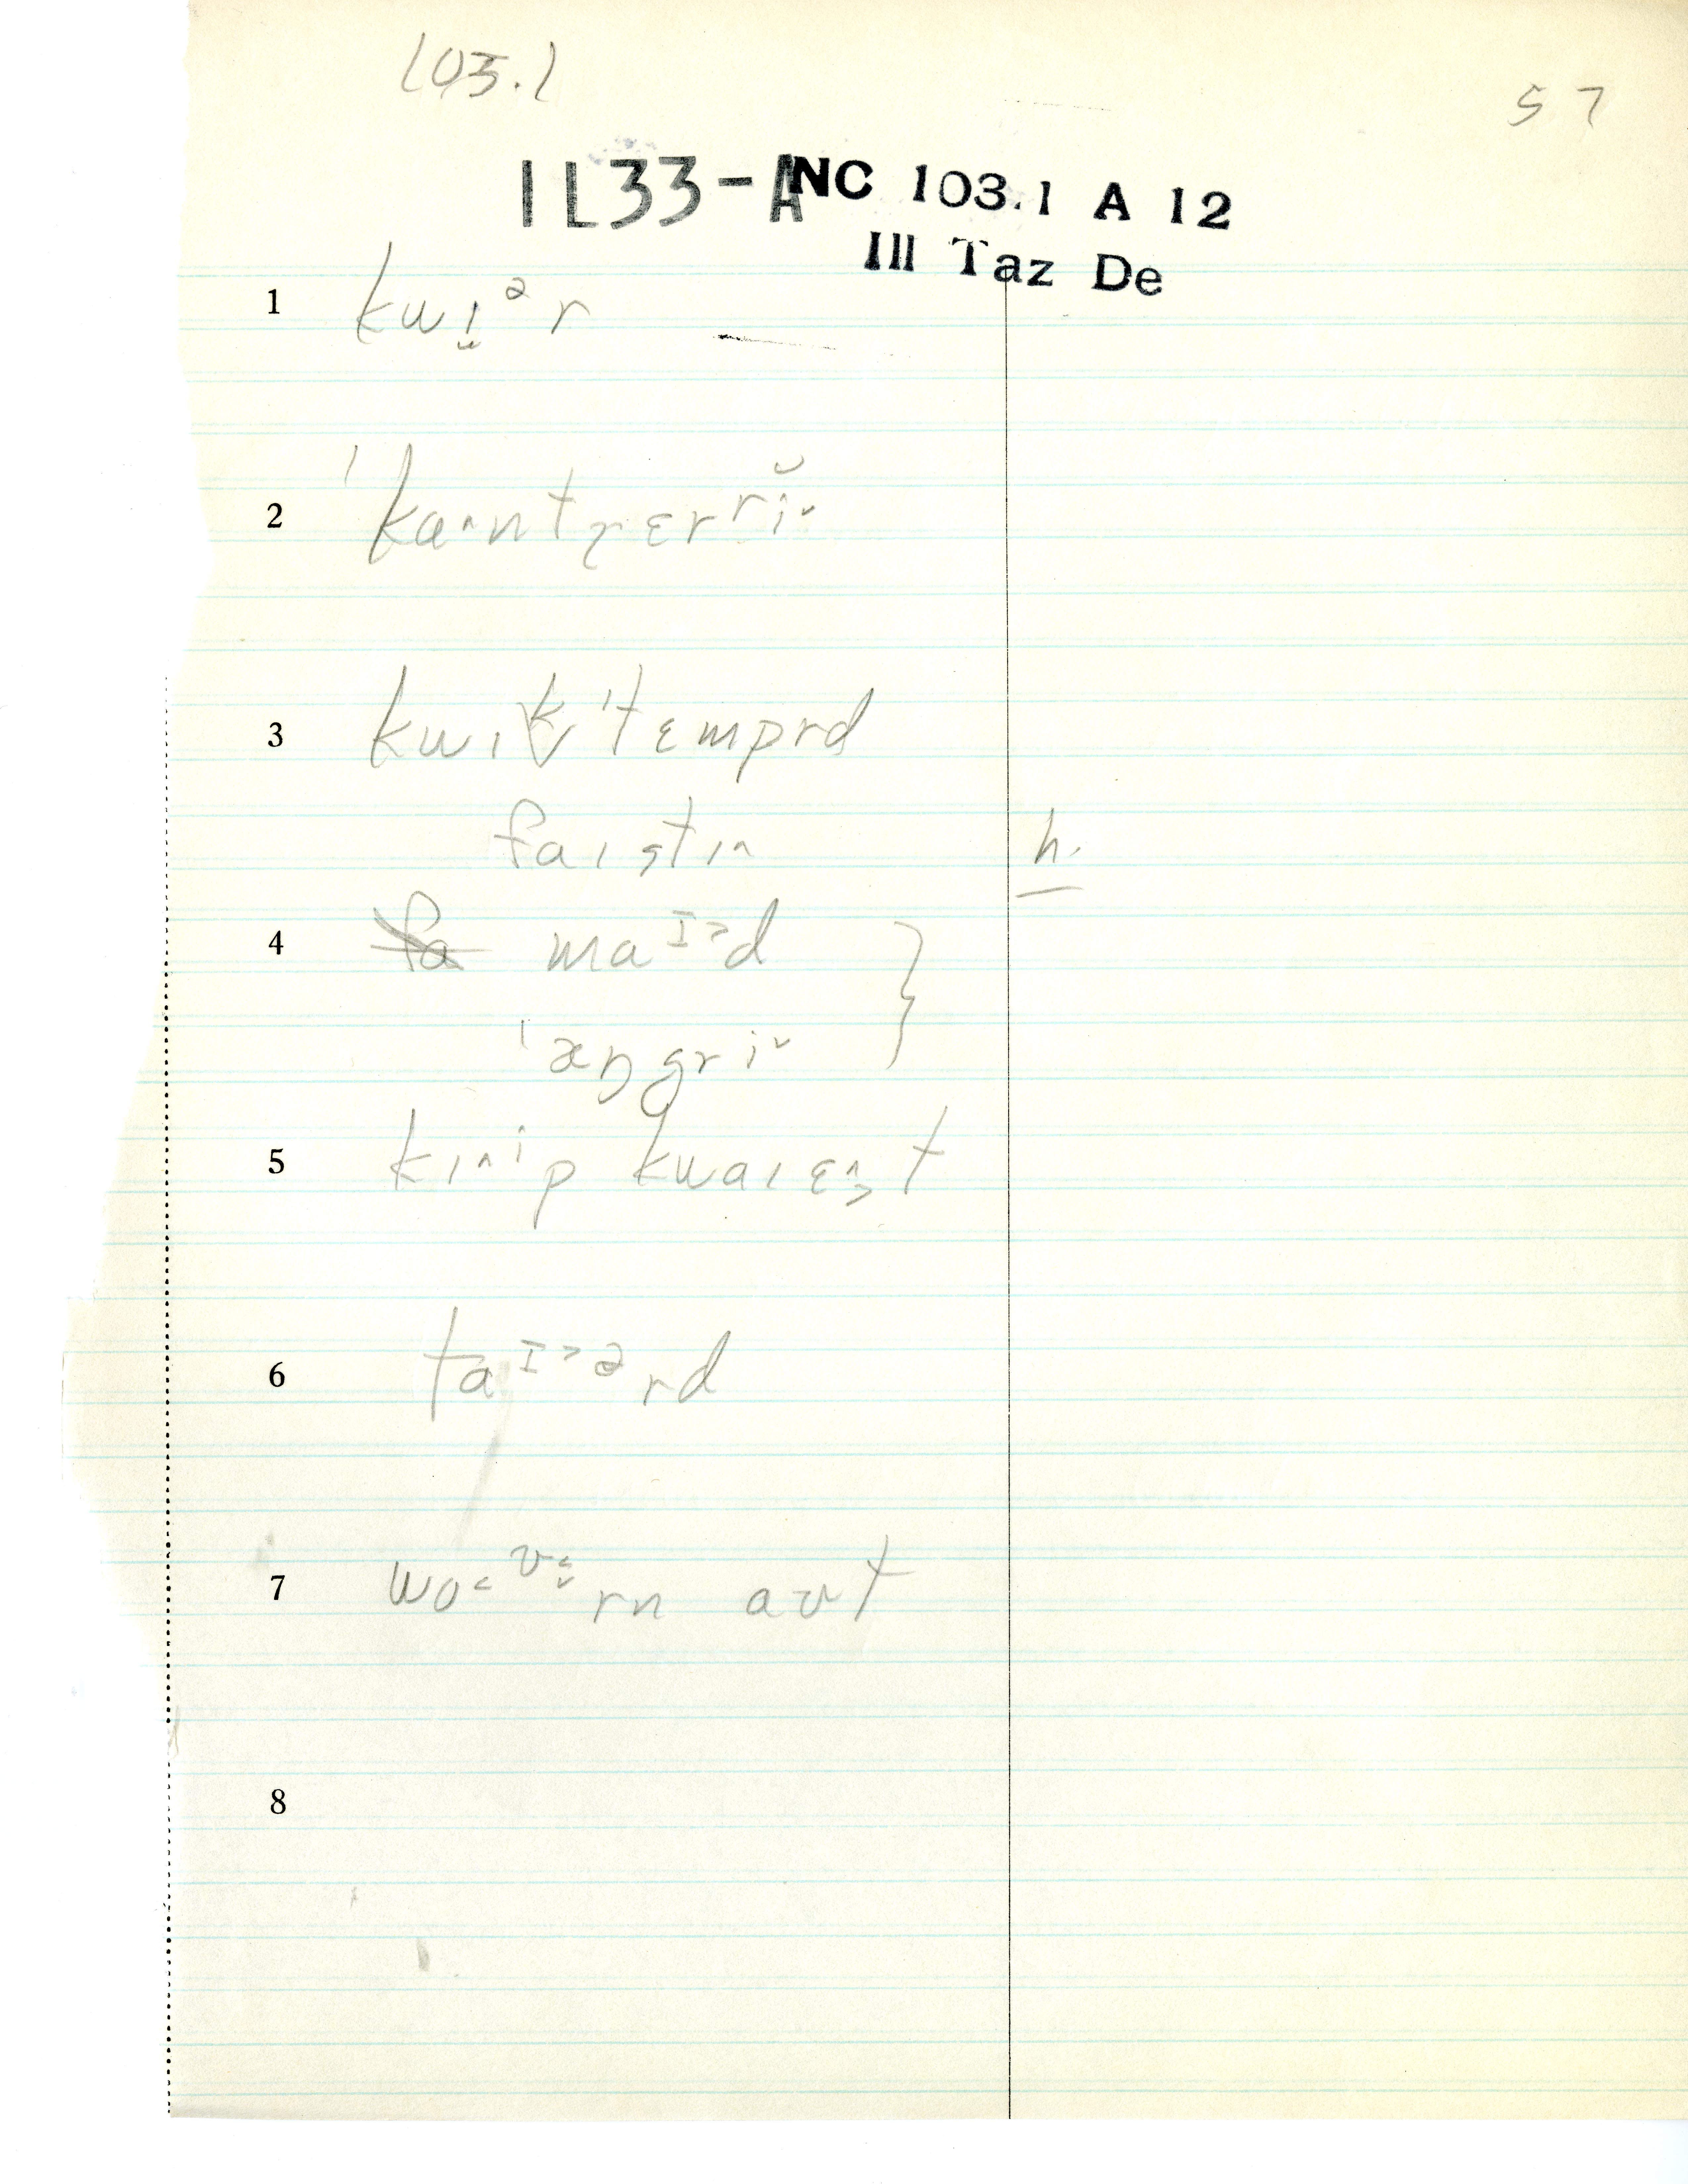 103.1
57
1L33-A NC 103.1 A 12
Ill Taz De
1 kwɪ̬ᵊr
2 ˈka˄ntrɛrrĭ˅
3 kwɪk ˈtɛmprd
faɪstɪ˄ h.
4 fa maᴵ˃d }
ˈæŋgri˅
5 kɪ˄ⁱp kwaɪɛ˄t
6 taᴵ˃ᵊrd
7 wo˂ᶹ rn aʊt
8